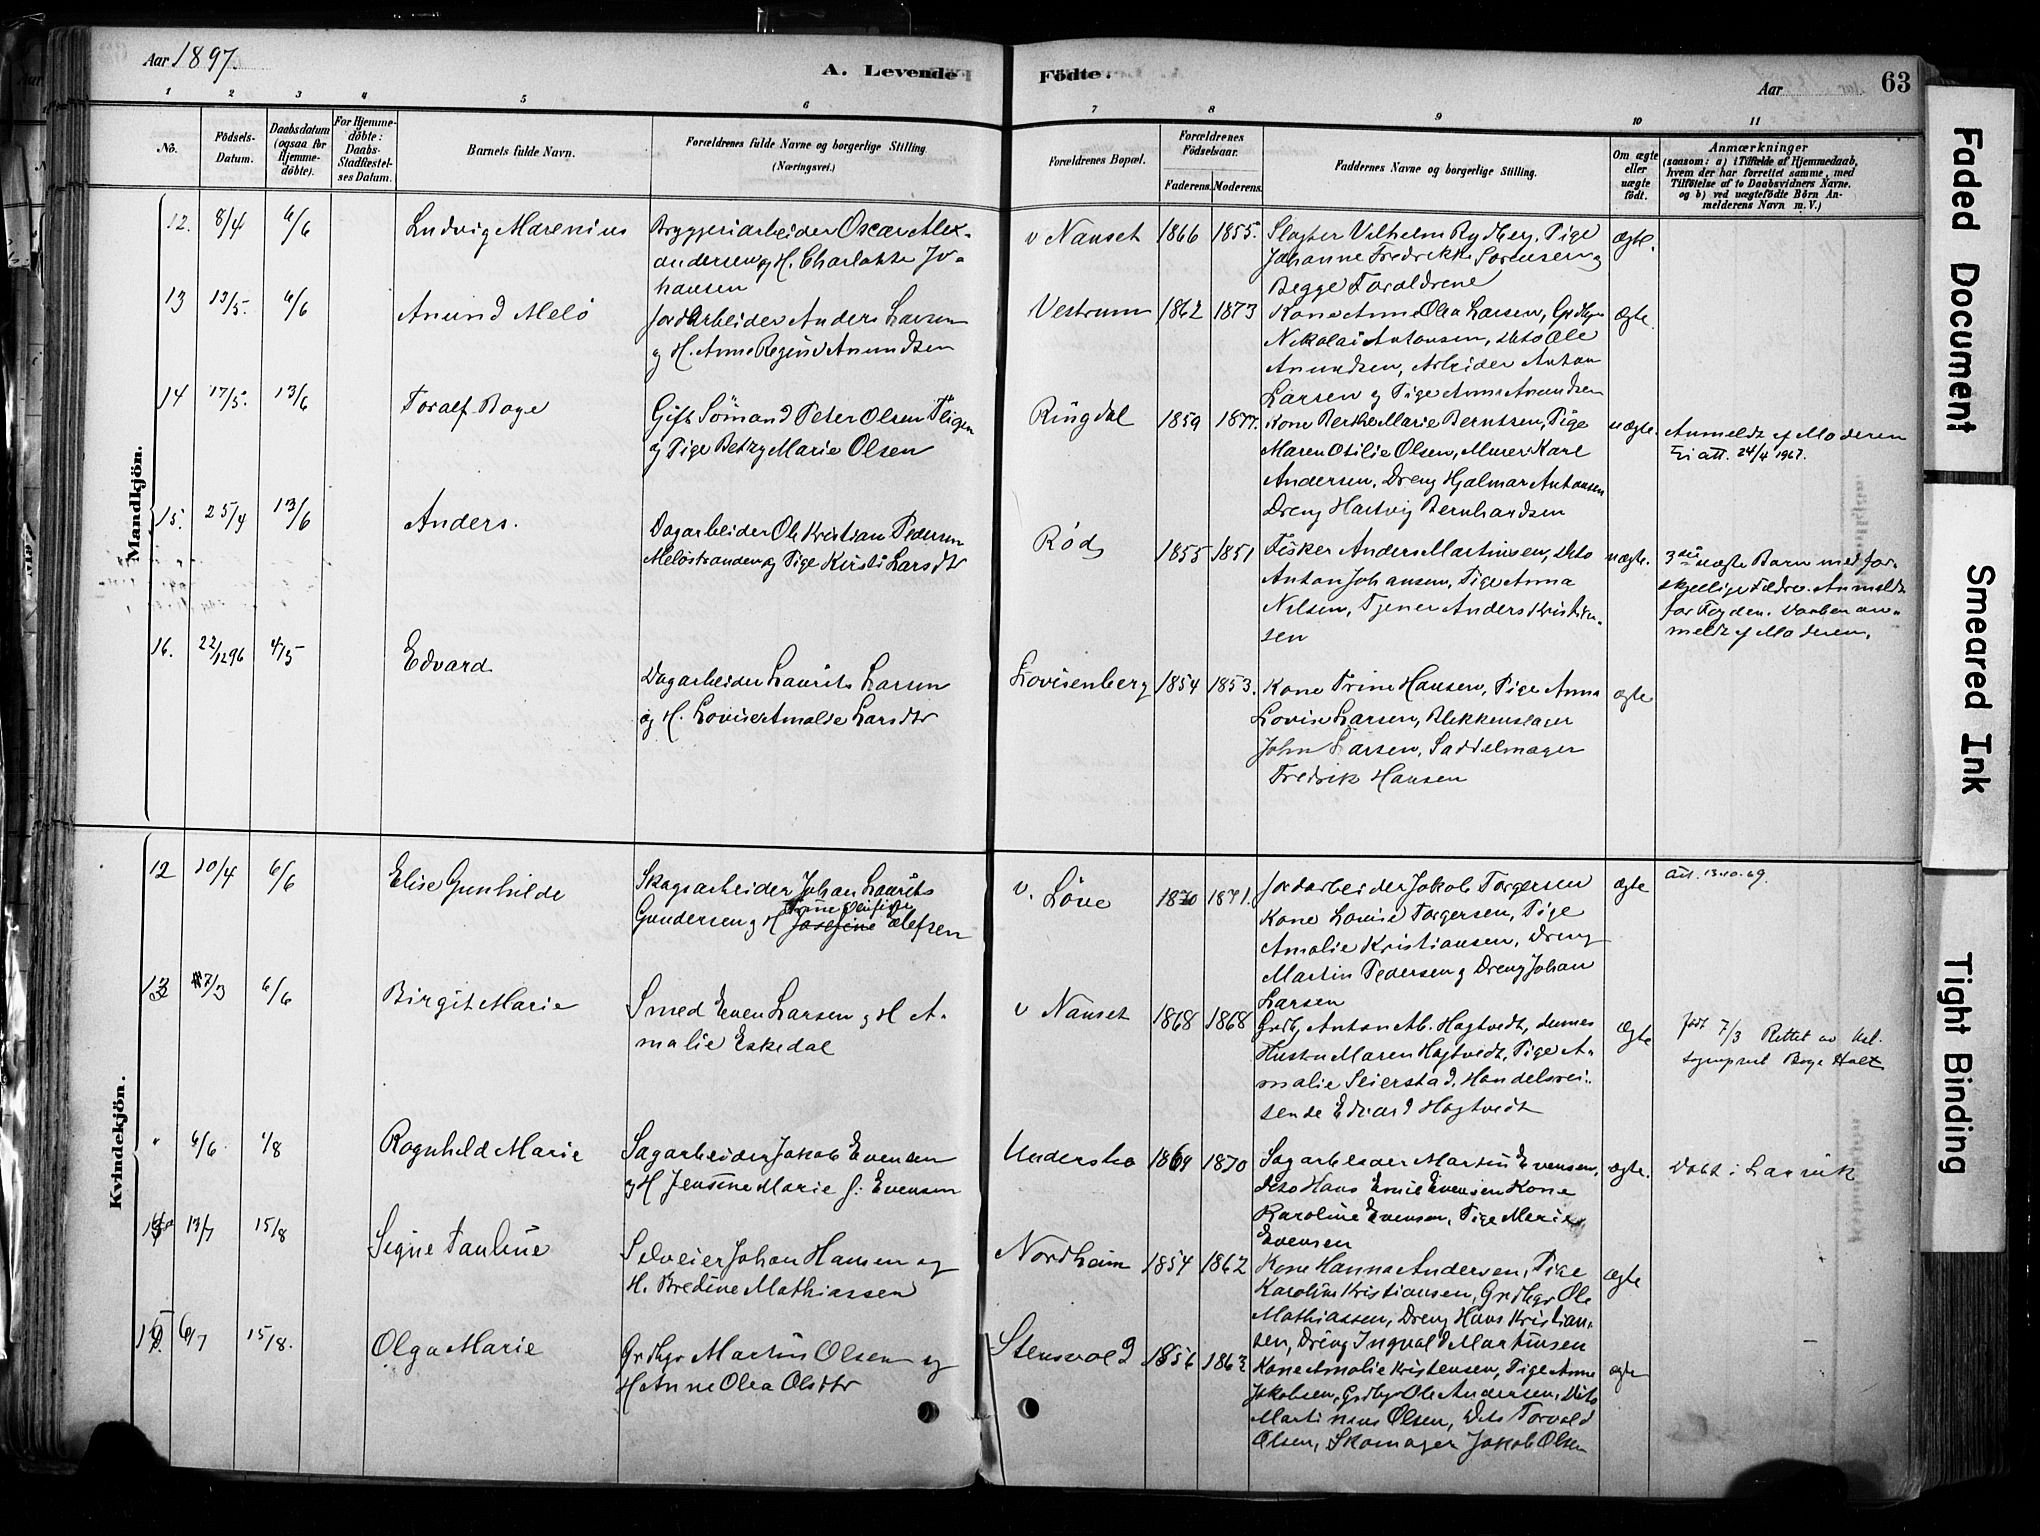 Aar 1897.
A. Levende
Födte.
Aar
63
1 2 3 4 5 6 7 8 9 10 11
No.
Födsels-
Datum.
Daabsdatum
(ogsaa for
Hjemme-
döbte).
For Hjemme-
döbte:
Daabs-
Stadfæstel-
ses Datum.
Barnets fulde Navn.
Forældrenes fulde Navne og borgerlige Stilling.
(Næringsvei.)
Forældrenes Bopæl.
Forældrenes
Födselsaar.
Faderens. Moderens.
Faddernes Navne og borgerlige Stilling.
Om ægte
eller
uægte
födt.
Anmærkninger
(saasom: a) i Tilfælde af Hjemmedaab,
hvem der har forrettet samme, med
Tilföielse af to Daabsvidners Navne.
og b) ved uægtefödte Börn An-
melderens Navn m. V.)
Mandkjön.
12. 8/4 6/6 Ludvig Marenius
Bryggeriarbeider Oscar Alex-
andersen og H. Charlotte Jo-
hansen
v Nanset 1866 1855.
Slagter Vilhelm Rydberg, Pige
Johanne Fredrikke Sörensen og
Begge Forældrene
Ægte.
13 13/5. 6/6 Anund Melö
Jordarbeider Anders Larsen
og H. Anne Regine Anundsen
Vestrum 1862 1873
Kone Anne Olea Larsen, Grdbgr
Nikolai Antonsen, dito Ole
Anundsen, Arbeider Anton
Larsen og Pige Anne Anundsen
Ægte.
14 17/5. 13/6 Toralf Boge
Gift Sömand Peter Olsen
og Pige Betzy Marie Olsen
Ringdal 1859 1877.
Kone Berthe Marie Berntsen, Pige
Maren Otilie Olsen, Murer Karl
Andersen, Dreng Hjalmar Antonsen
Dreng Hartvig Bernhardsen
uægte.
Anmeldt af Moderen
Ei att. 24/4 1967.
15. 25/4 13/6 Anders.
Dagarbeider Ole Kristian Pedersen
Melöstranden og Pige Kirsti Larsdtr
Röd 1855 1851
Fisker Anders Martinsen, dito
Anton Johansen, Pige Anna
Nilsen, Tjener Anders Kristian-
sen
uægte.
3die uægte Barn med for-
skjellige Fædre. Anmeldt
for Fogden. Daaben an-
meldt af Moderen.
16. 22/12 96 4/5 Edvard
Dagarbeider Laurits Larsen
og H. Lovise Amalie Larsdtr
Lovisenberg 1854 1853.
Kone Trine Hansen, Pige Anna
Lovise Larsen, Blikkenslager
John Larsen, Saddelmager
Fredrik Hansen
ægte
Kvindekjön.
12 10/4 6/6 Elise Gunhilde
Skogsarbeider Johan Laurits
Gundersen og H Josefine Olefsen
v. Löve 1870 1871.
Jordarbeider Jakob Torgersen
Kone Lovise Torgersen, Pige
Amalie Kristiansen, Dreng
Martin Pedersen og Dreng Johan
Larsen
Ægte
att. 13.10.69.
13 7/3 6/6 Birgit Marie
Smed Even Larsen og H A-
malie Eskedal
v Nanset 1868 1868
Grdbr Anton M. Hagtvedt, dennes
Hustru Maren Hagtvedt, Pige A-
malie Seierstad, Handelsrei-
sende Edvard Hagtvedt
Ægte
født 7/3 Rettet av kal.
sogneprest Boye Holt
" 6/6 1/8 Ragnhild Marie
Sagarbeider Jakob Evensen
og H Jensine Marie J. Evensen
Understo 1869 1870
Sagarbeider Martin Evensen,
dito Hans Emil Evensen Kone
Karoline Evensen, Pige Marie
Evensen
ægte.
Döbt i Laurvik
13/7 15/8 Signe Pauline
Selveier Johan Hansen og
H. Bredine Mathiassen
Nordheim 1854 1862
Kone Hanna Andersen, Pige
Karoline Kristiansen, Grdbgr Ole
Mathiassen, Dreng Hans Kristian-
sen, Dreng Ingvald Martinsen
Ægte
6/7 15/8. Olga Marie
Grdbgr Martin Olsen og
H Anne Olea Olsdtr
Stensvold 1856 1863
Kone Amalie Kristensen, Pige Anne
Jakobsen, Grdbgr Ole Andersen, dito
Martinius Olsen, dito Torvald
Olsen, Skomager Jakob Olsen
ægte
Faded Document
Smeared Ink
Tight Binding